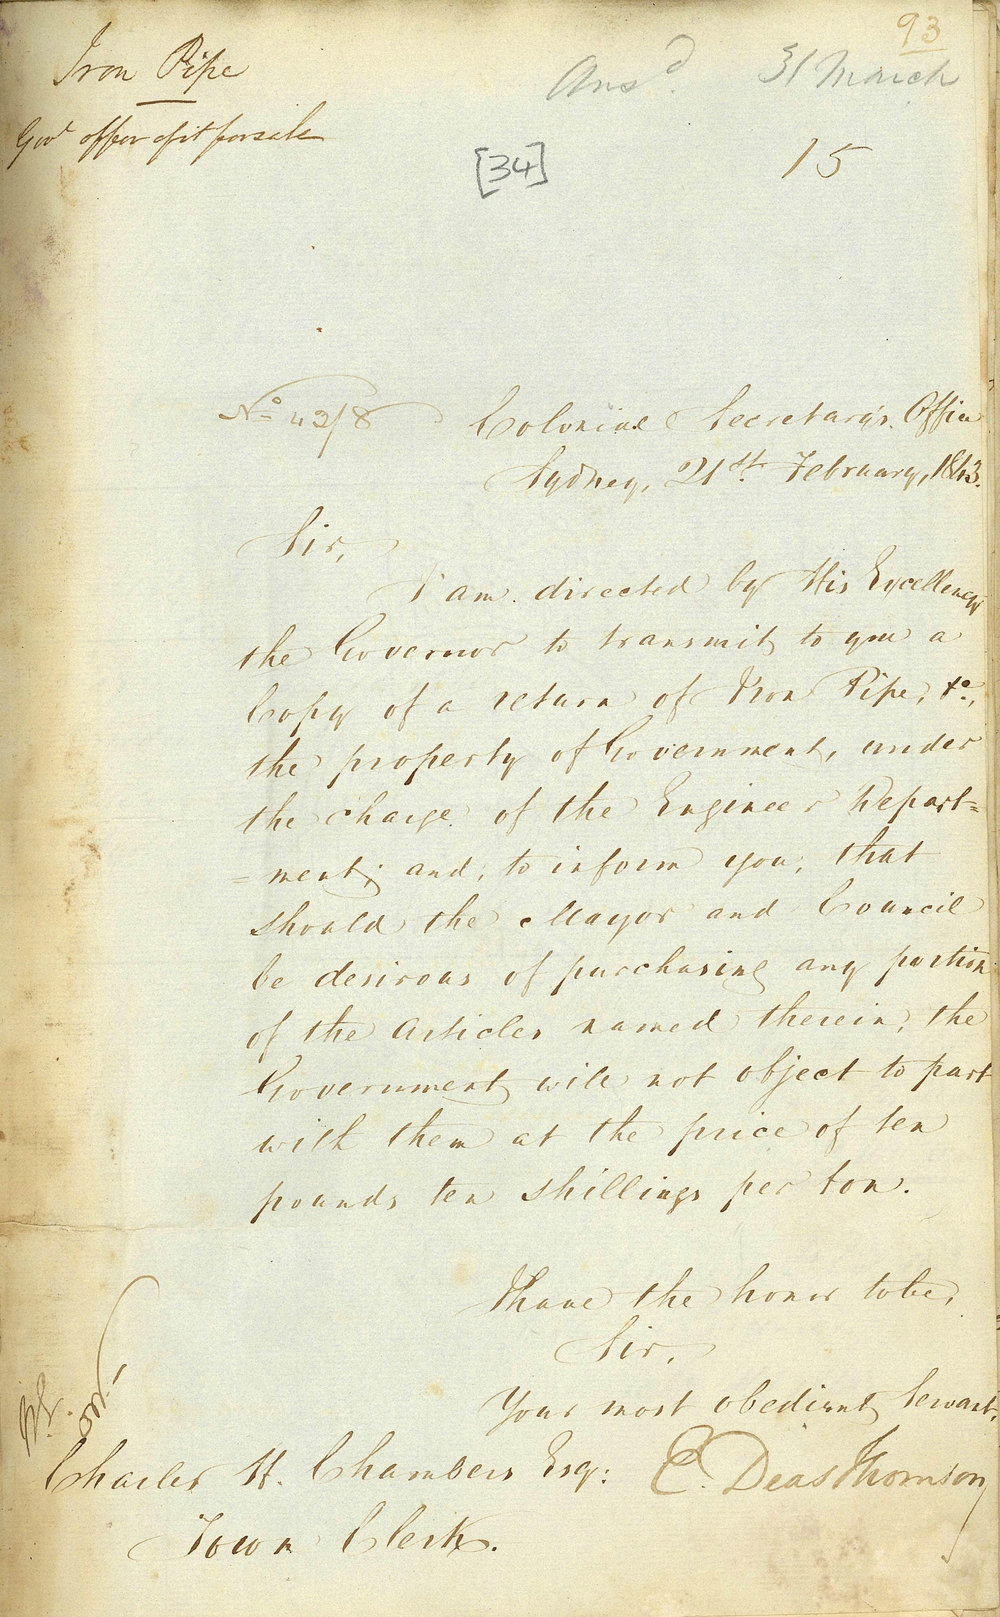 93
Iron Pipe
Ansd. 31 March
Govt offer of it for sale
[34]
15
No. 43/8
Colonial Secretary's Office
Sydney, 21st. February, 1843.
Sir,
I am directed by His Excellency
the Governor to transmit to you a
Copy of a return of Iron Pipe, &c.,
the property of Government, under
the charge of the Engineer Depart=
=ment; and, to inform you, that
should the Mayor and Council
be desirous of purchasing any portion
of the Articles named therein, the
Government will not object to part
with them at the price of ten
pounds ten shillings per ton.
I have the honor to be,
Sir,
Your most obedient Servant,
E. Deas Thomson
Charles H. Chambers Esq:
Town Clerk.